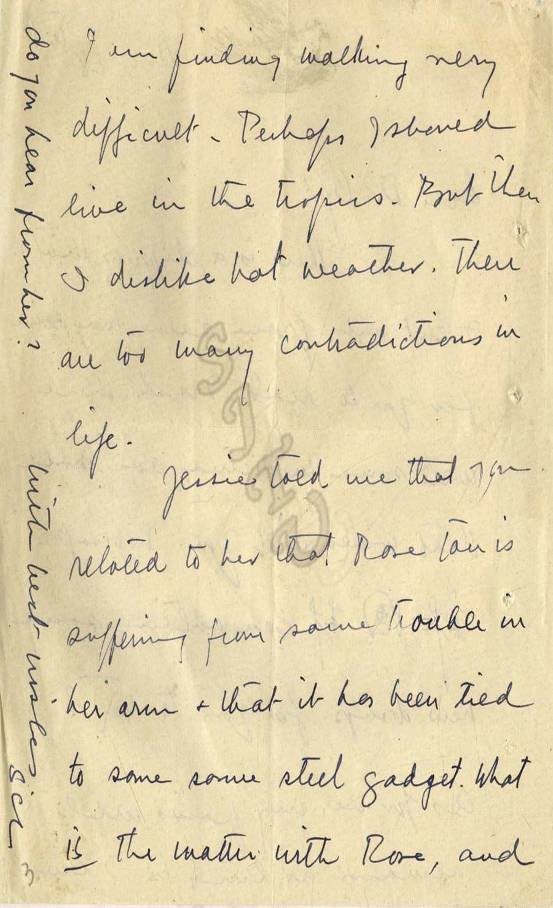 I am finding walking very
difficult. Perhaps I should
live in the tropics. But then
I dislike hot weather. There
are too many contradictions in
life.
Jessie told me that you
related to her that Rose Tan is
suffering from some trouble in
her arm + that it has been tied
to some some steel gadget. What
is the matter with Rose, and
do you hear from her?
With best wishes